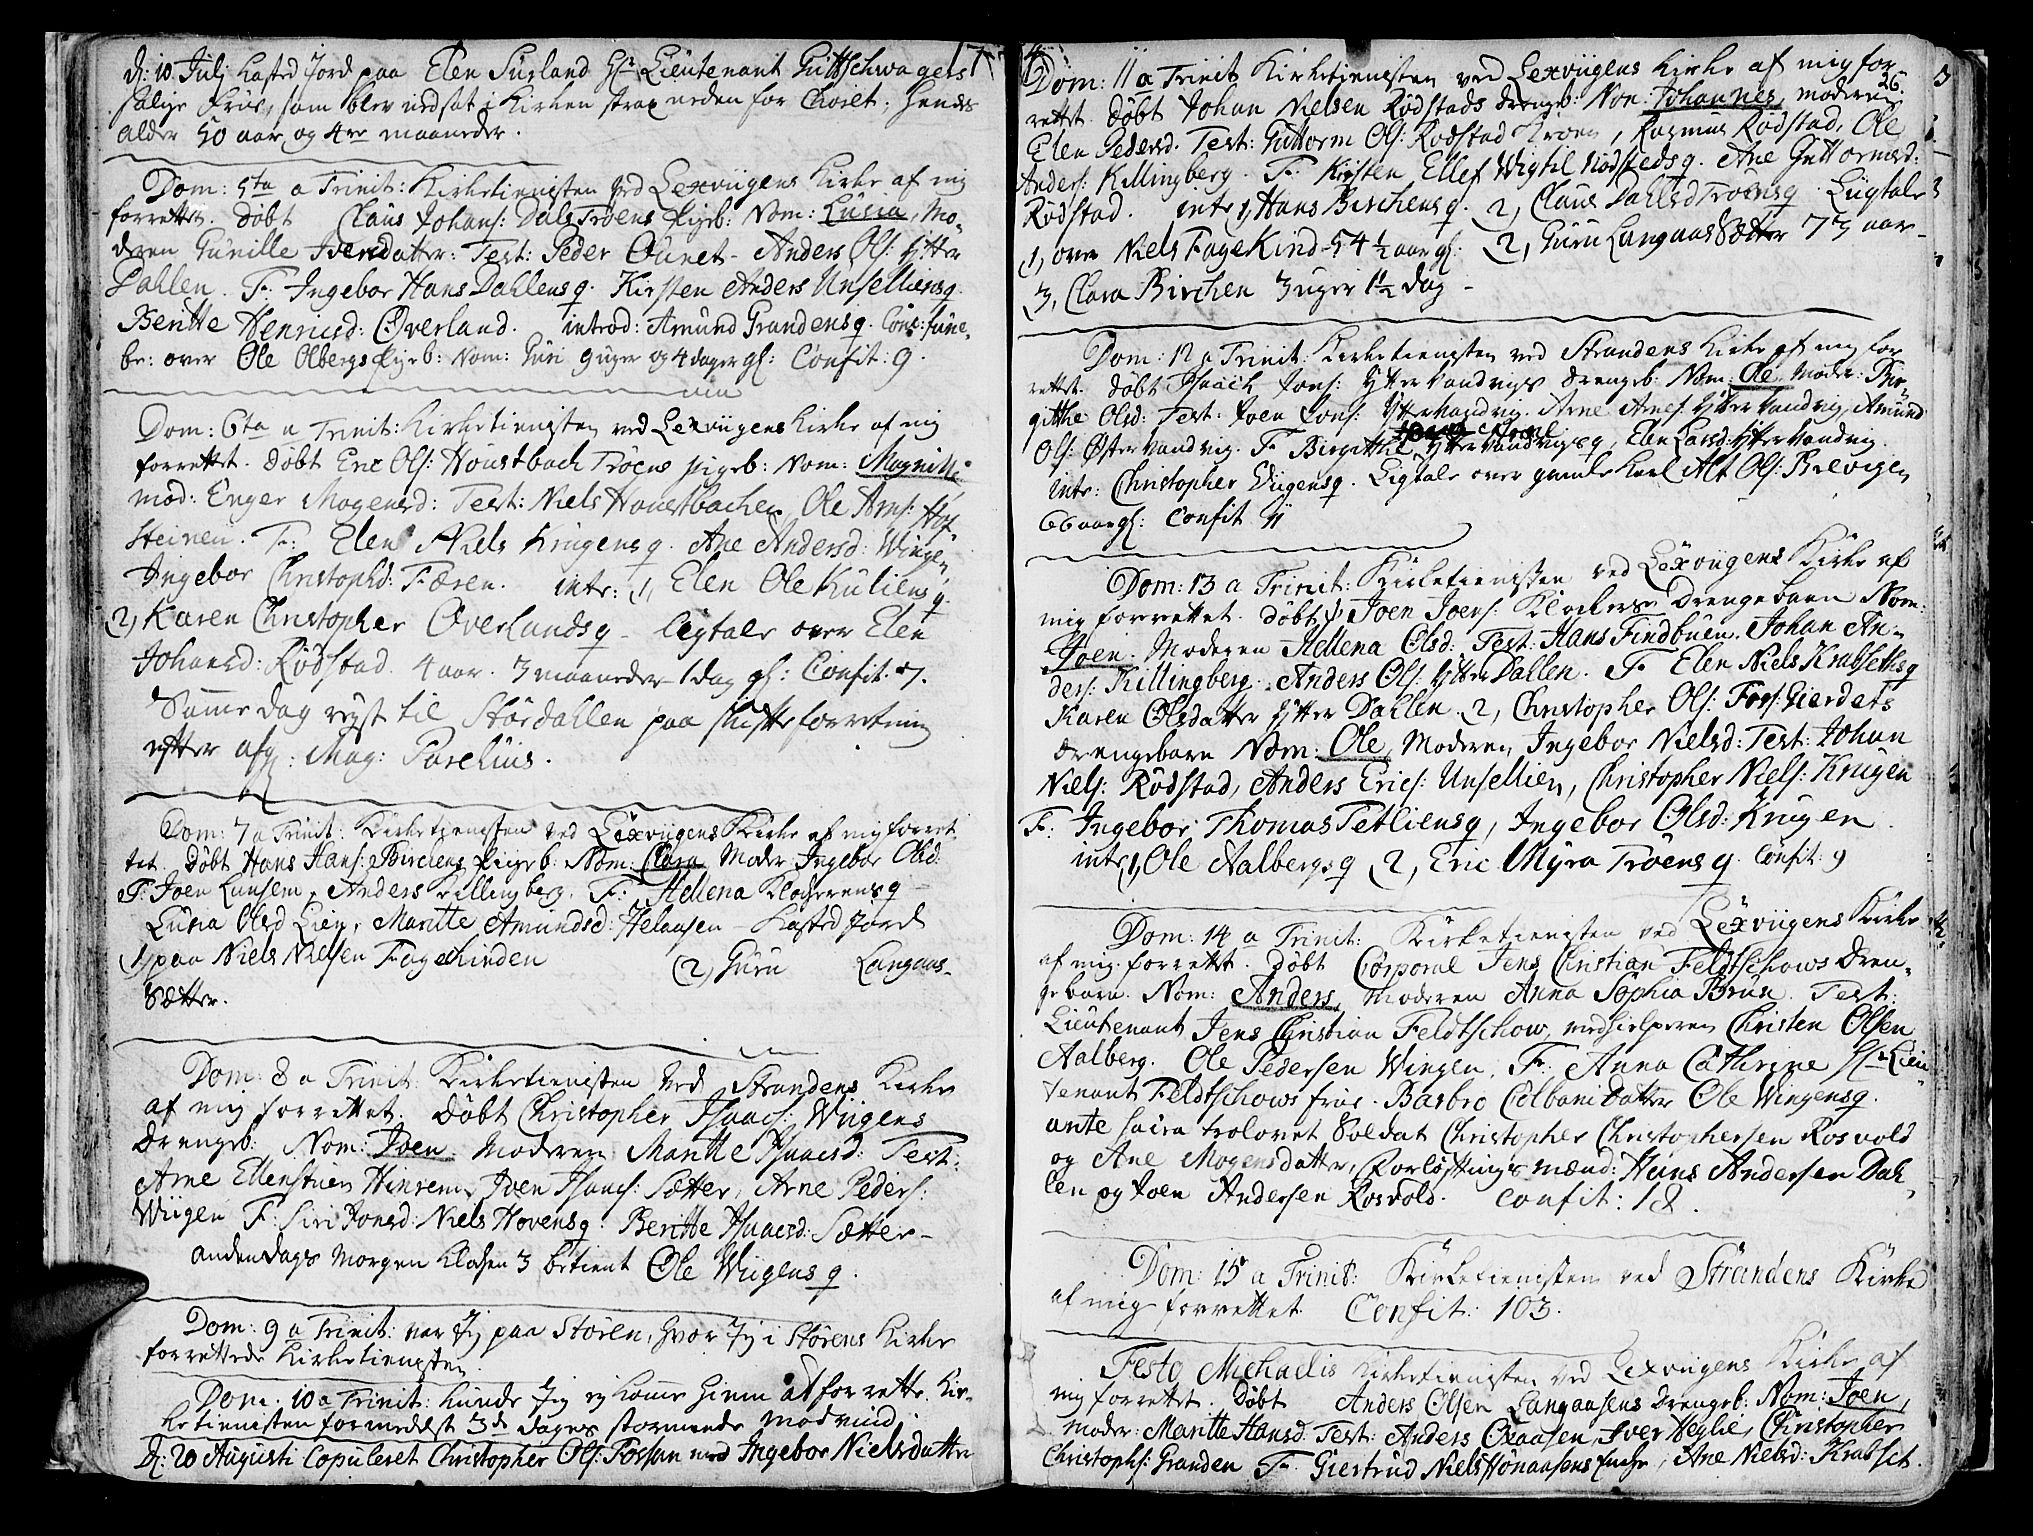 d: 10 Julj kasted Jord paa Elen Surland Hr Lieutenant Guttschwagers 17
salige Frue, som blev nedsat i Kirken strax neden for Choret. Hendes
alder 50 aar og 4re maaneder.
Dom: 5ta a Trinit: Kirketienesten ved Lexviigens Kirke af mig
forrettet. Døbt Claus Johans: Dals Trøens pigeb: Nom: Lucia, Mo-
deren Gunille Iversdatter: Test: Peder Ørnet - Anders Ols: Ytter
Dahlen. F: Ingebor Hans Dahlens q. Kirsten Anders Unselliens q.
Beritte Henricsd: Øverland. introd: Amund Grandens q. Conc: fune-
br: over Ole Olbergs Pigeb: Nom: Guri 9 uger og 4 dager gl: Confit: 9.
Dom: 6ta a Trinit: Kirketienesten ved Lexviigens Kirke af mig
forrettet. Døbt Eric Ols: Houstbach Trøens pigeb: Nom: Magnille
mod: Enger Mogensd: Test: Niels Houstbachen Ole Arns: Hof-
steinen. F: Elen Niels Krugens q. Ane Andersd: Winge,
Ingebor Christophd: Færen. intr: 1, Elen Ole Kuliens q
2, Karen Christopher Øverlands q - Ligtale over Elen
Johansd: Rødstad. 4 aar. 3 maaneder 1 dag gl: Confit: 7.
Samme dag reyst til Størdahlen paa skifteforretning
efter afg: Mag: Parelius.
Dom: 7 a Trinit: Kirketienesten ved Lexviigens Kirke af mig forret
tet. Døbt Hans Hans: Birchens pigeb: Nom: Clara Moder Ingebor Olsd:
T: Joen Lansem, Anders Killingberg. F: Hellena Klockerens q -
Lucia Olsd Lien, Maritte Amundsd: Helaasen - Kasted Jord
1, paa Niels Nielsen Fagekinden 2, Guru Langaas-
Sætter.
Dom: 8 a Trinit: Kirketienesten ved Strandens Kirke
af mig forrettet. Døbt Christopher Isaacs: Wiigens
Drengeb: Nom: Joen. Moderen Maritte Isaacsd: Test:
Arne Ellenstuen Hinrem, Joen Isaacs: Sætter, Arne Peders:
Wiigen F: Siri Jonsd: Niels Hovens q: Beritte Isaacsd: Sætter -
anden dags Morgen Klocken 3 betient Ole Wiigens q.
Dom: 9 a Trinit: var Jeg paa Støren, hvor Jeg i Størens Kirke
forrettede Kirketienesten.
Dom: 10 a Trinit: kunde Jeg ej komme hiem at forrette Kir-
ketienesten formedelst 3de dages stormende modvind
d: 20 Augusti Copuleret Christopher Ols: Fossum med Ingebor Nielsdatter
Dom: 11 a Trinit: Kirketienesten ved Lexviigens Kirke af mig for
26.
rettet Døbt Johan Nielsen Rødstads drengeb: Nom: Johannes, moderen
Elen Pedersd. Test: Guttorm Ols: Rødstad Kroen, Rasmus Rødstad, Ole
Anders: Killingberg. F: Kirsten Ellef Wigtil Rødsteds q. Ane Guttormsd:
Rødstad. intr: 1, Hans Birchens q. 2, Claus Dahls Trøens q. Ligtale
1, over Niels Fagekind 54 ½ aar gl: 2, Guru Langaas Sætter 73 aar -
3, Clara Birchen 3 uger 1½ dag -
Dom: 12 a Trinit: Kirketienesten ved Strandens Kirke af mig for
rettet. Døbt Isaach Jons: Ytter Vandvigs drengeb: Nom: Ole, Moder: Bir-
gitthe Olsd: Test: Joen Jons: Ytter Vandvig. Arne Arnes: Ytter Vandvig, Amund
Ols: Øster Vandvig. F: Birgitthe Ytter Vandvigs q, Elen Larsd: Ytter Vandvig.
intr: Christopher Wiigens q. Ligtale over gamle Karl Alt Ols: Brevigen
66 aar gl: Confit 11
Dom: 13 a Trinit: Kirketienesten ved Lexviigens Kirke af
mig forrettet. Døbt 1, Joen Joens: Klockers Drengebarn Nom:
Joen. Moderen Hellena Olsd: Test: Hans Findbuen, Johan An-
ders: Killingberg. Anders Ols: Ytter Dallen. F: Elen Niels Krabseths q
Karen Olsdatter Ytter Dahlen. 2, Christopher Ols: Fors: Gierdets
drengebarn Nom: Ole, Moderen, Ingebor Nielsd: Test: Johan
Niels: Rødstad, Anders Erics: Unsellien, Christopher Niels: Krugen
F: Ingebor Thomas Tetliens q, Ingebor Olsd: Krugen
intr: 1, Ole Aalbergs q 2, Eric Myra Trøens q. Confit: 9
Dom: 14 a Trinit: Kirketienesten ved Lexviigens Kirke
af mig forrettet. Døbt Corporal Jens Christian Feldtschows dren-
gebarn. Nom: Anders, Moderen Anna Sophia Brun. Test:
Lieutenant Jens Christian Feldtschow, medhielperen Christen Olsen
Aalberg. Ole Pedersen Wingen. F: Anna Cathrine Hr Lieu-
tenant Feldtschows frue. Barbro Colbani datter Ole Wingens q.
ante sacra trolovet Soldat Christopher Christophersen Rosvold
og Ane Mogensdatter, Forløftnings mænd: Hans Andersen Dah-
len og Joen Andersen Rosvold. Confit: 18.
Dom: 15 a Trinit: Kirketienesten ved Strandens Kirke
af mig forrettet. Confit: 103.
Festo Michaelis Kirketienesten ved Lexviigens Kirke af
mig forrettet. Døbt Anders Olsen Langaasens drengeb: Nom: Joen,
moder: Maritte Hansd. Test: Anders Oxaasen, Iver Heglie, Christopher
Christophs: Granden F: Giertrud Niels Hønaasens Enche, Ane Nielsd: Krabset.